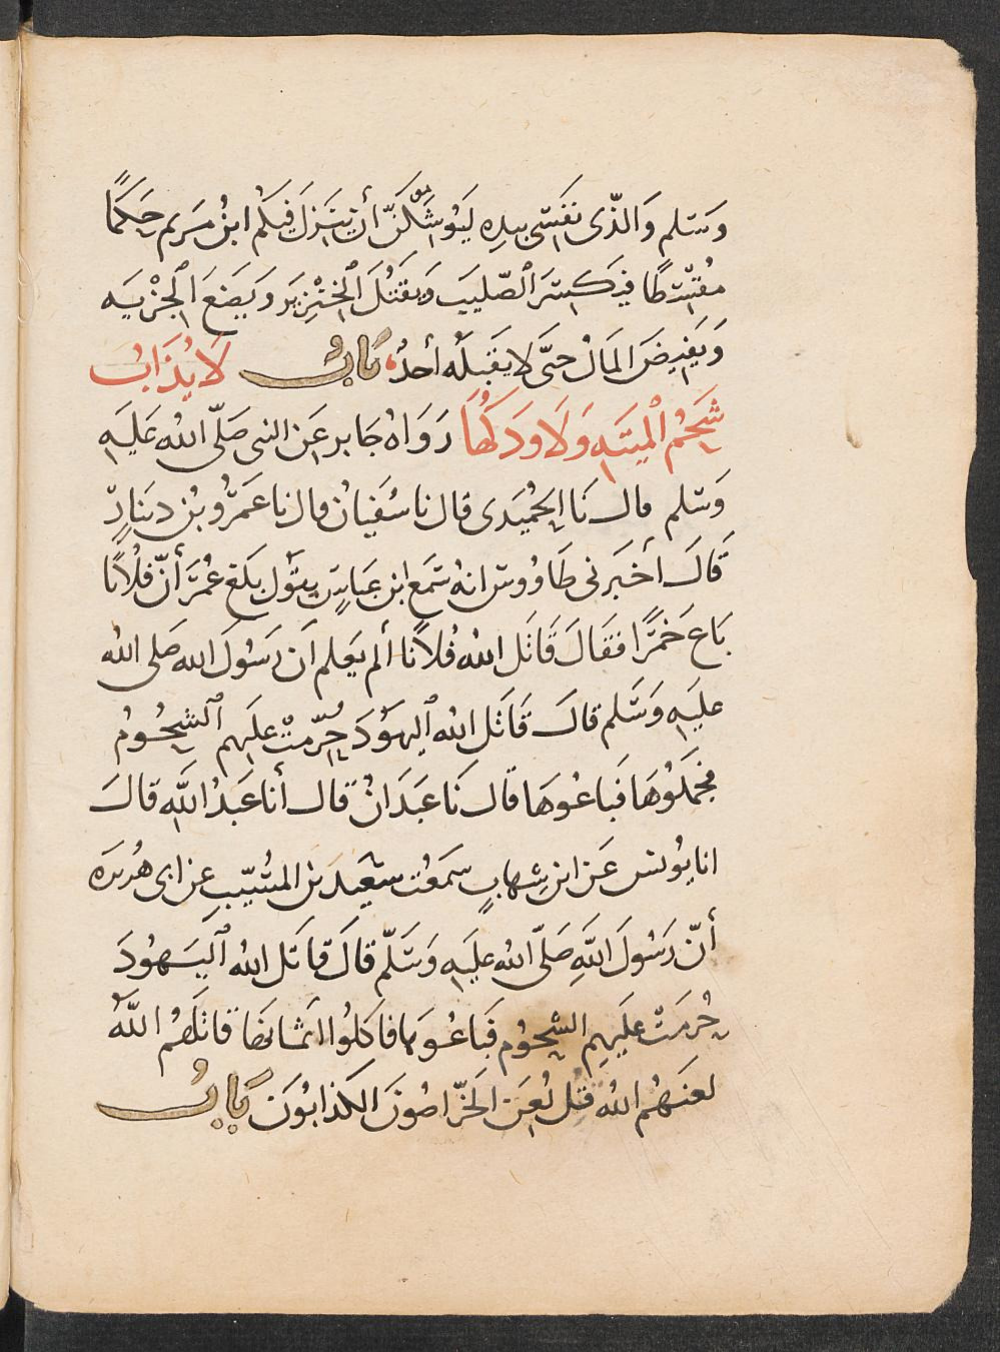 وَسَلم وَالذّى نفَسَى بيدِه لَيُوشَكَنّ أن يَنزلَ فيكُم ابنُ مَريم حَكَمًا
مُقسِطًا فيَكسِرَ الصّليبَ وَيقتُلَ الخنزِيرَ وَيَضعَ الجزْيَه
وَيَفِيضَ المَالُ حتَّى لا يَقبَلَه أحدُ بَابُ لَا يُذَابُ
شَحْمُ الْميتَهِ وَلَا وَدَكُهَا رَوَاهُ جَابر عَن النبى صَلّى اللهُ عَليَهِ
وَسَلم قال نَا الحُمَيَدى قال نا سُفيَانُ قال نا عَمرُو بْن دينَارٍ
قَالَ أخبَرنى طَاوُوس انه سَمعَ ابن عَباسٍ يقول بَلَغ عُمَرَ أنّ فلُانًا
بَاعَ خَمرًا فقَالَ قَاتَل اللهُ فُلاَنا ألم يَعلم اَن رَسُولَ الله صَلى الله
عليَهِ وَسَلم قالَ قَاتَل اللهُ اليهَودَ حُرّمَتْ علَيهم الشحُومُ
فجمَلُوهَا فبَاعُوهَا قال نَا عَبدَانُ قال أنا عَبدُ اللَّهِ قالَ
انا يُونس عَن ابن شِهابٍ سَمعُت سَعِيدَ بن المسُيّبِ عن ابى هُريرَه
أنّ رَسُولَ اللَّهِ صَلّى اللهُ عليَهِ وَسَلّم قالَ قاتَل اللهُ اليَهُودَ
حُرمَتْ عَليَهِم الشحُوم فَبَاعُوهَا فاكَلُوا اثمَانهَا قاتَلهُم اللهُ
لعنَهُم اللهُ قُتِل لُعِنَ الخَرّاصُونَ الكذابُونَ بَابُ